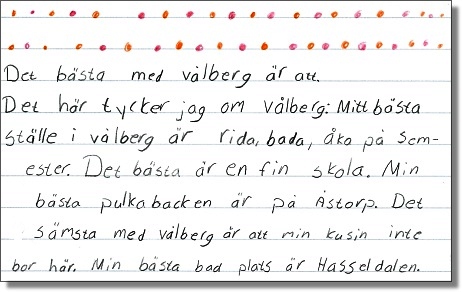 Det bästa med vålberg är att.
Det här tycker jag om vålberg: Mitt bästa
ställe i vålberg är rida, bada, åka på sem-
ester. Det bästa är en fin skola. Min
bästa pulkabacken är på Åstorp. Det
sämsta med vålberg är att min kusin inte
bor här. Min bästa bad plats är Hasseldalen.